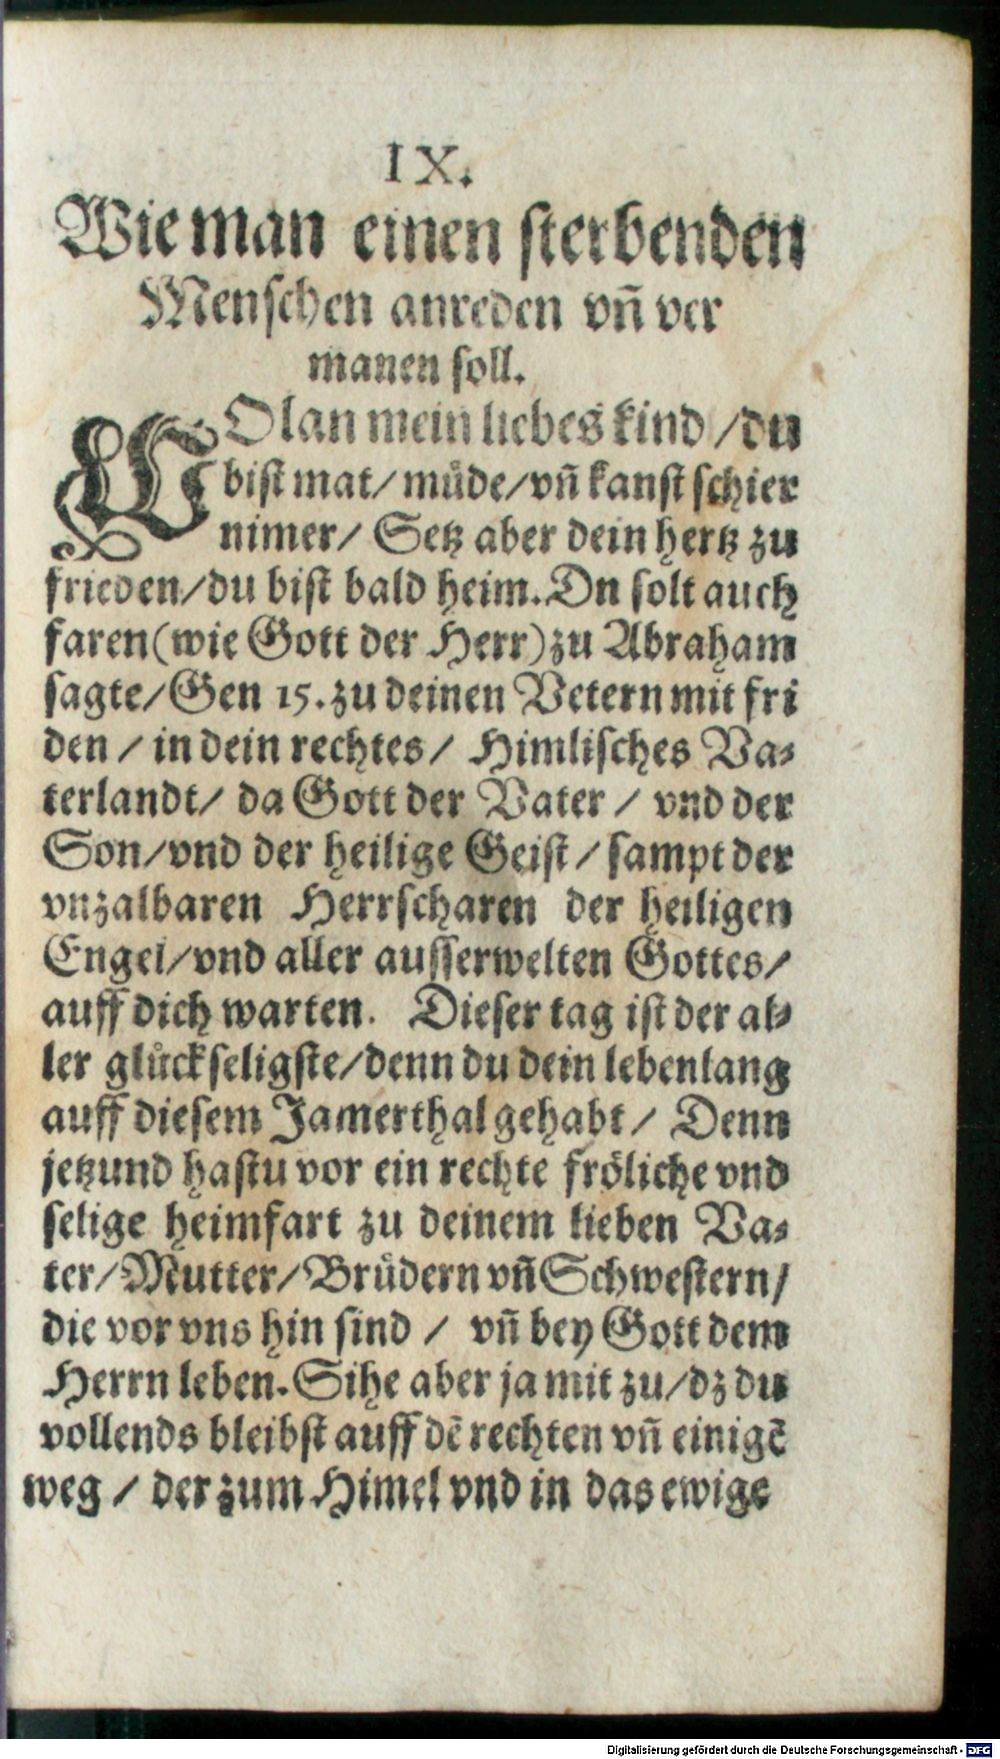 IX.
Wie man einen sterbenden
Menschen anreden vñ ver
manen soll.
WOlan mein liebes kind /du
bist mat/ müde/vñ kanst schier
nimer/ Setz aber dein hertz zu
frieden/du bist bald heim. Dn solt auch
faren(wie Gott der Herr)zu Abraham
sagte/Gen 15. zu deinen Vetern mit fri
den / in dein rechtes/ Himlisches Va-
terlandt/ da Gott der Vater / vnd der
Son/vnd der heilige Geist / sampt der
vnzalbaren Herrscharen der heiligen
Engel/vnd aller ausserwelten Gottes/
auff dich warten. Dieser tag ist der al-
ler glückseligste/denn du dein lebenlang
auff diesem Jamerthal gehabt / Denn
jetzund hastu vor ein rechte fröliche vnd
selige heimfart zu deinem lieben Va-
ter/Mutter/Brüdern vñ Schwestern/
die vor vns hin sind / vñ bey Gott dem
Herrn leben. Sihe aber ja mit zu/dz du
vollends bleibst auff dē rechten vñ einigē
weg / der zum Himel vnd in das ewige
Digitalisierung gefördert durch die Deutsche Forschungsgemeinschaft - DFG